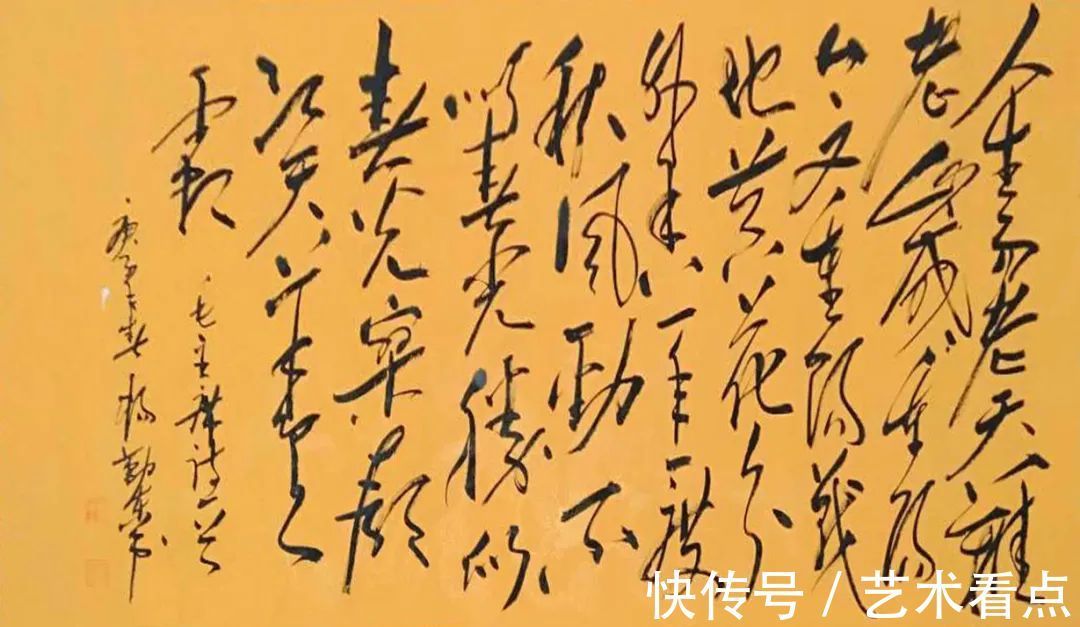 人生易老天難
老歲歲重陽
今又重陽戰
地黄花分
外香一年一度
秋風勁不
似春光勝似
春光寥廓
江天万里
霜
毛主席詩一首
庚子春楊勤
快传号/艺术看点